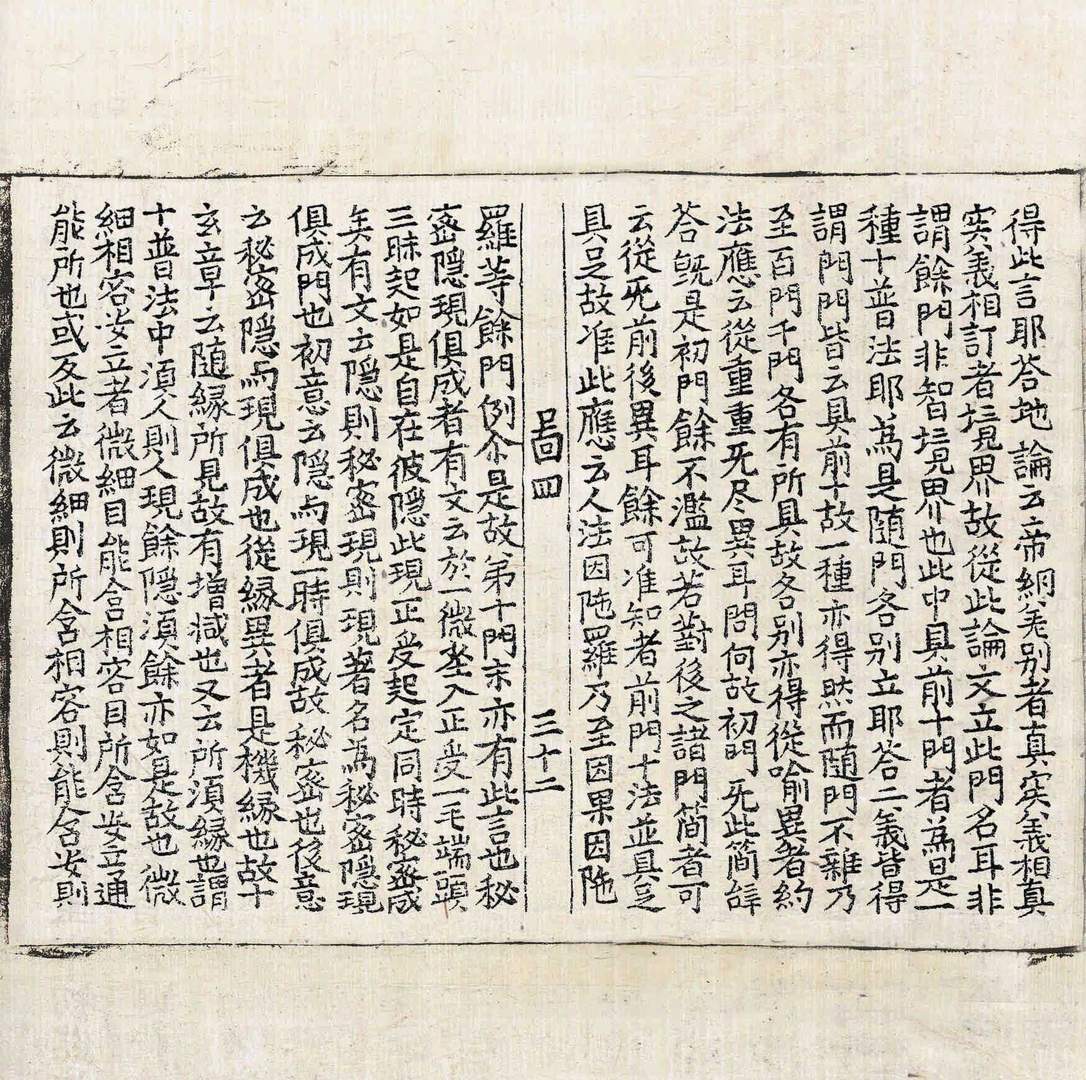 得此言耶答地論云帝網差别者真实義相真
实義相訂者境界故從此論文立此門名耳非
謂餘門非智境界也此中具前十門者為是一
種十普法耶為是随門各别立耶答二義皆得
謂門門皆云具前十故一種亦得然而随門不雜乃
至百門千門各有所具故各别亦得從喻異者約
法應云從重重旡尽異耳問何故初門旡此簡辝
答旣是初門餘不濫故若對後之諸門簡者可
云從旡前後異耳餘可准知者前門十法並具足
具足故准此應云人法因陁羅乃至因果因陁
圎四 三十二
羅等餘門例尒是故第十門末亦有此言也秘
密隱現俱成者有文云於一微塵入正受一毛端頭
三昧起如是自在彼隱此現正受起定同時秘密成
矣有文云隱則秘密現則現著名為秘密隱現
俱成門也初意云隱与現一時俱成故秘密也後意
云秘密隱与現俱成也從縁異者是機縁也故十
玄章云随縁所見故有增减也又云所湏縁也謂
十普法中湏人則人現餘隱湏餘亦如是故也微
細相容安立者微細目能含相容目所含安立通
能所也或反此云微細則所含相容則能含安則